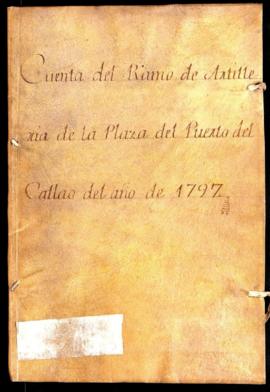 Cuenta del Ramo de Artille
ria de la Plaza del Puerto del
Callao del año de 1797